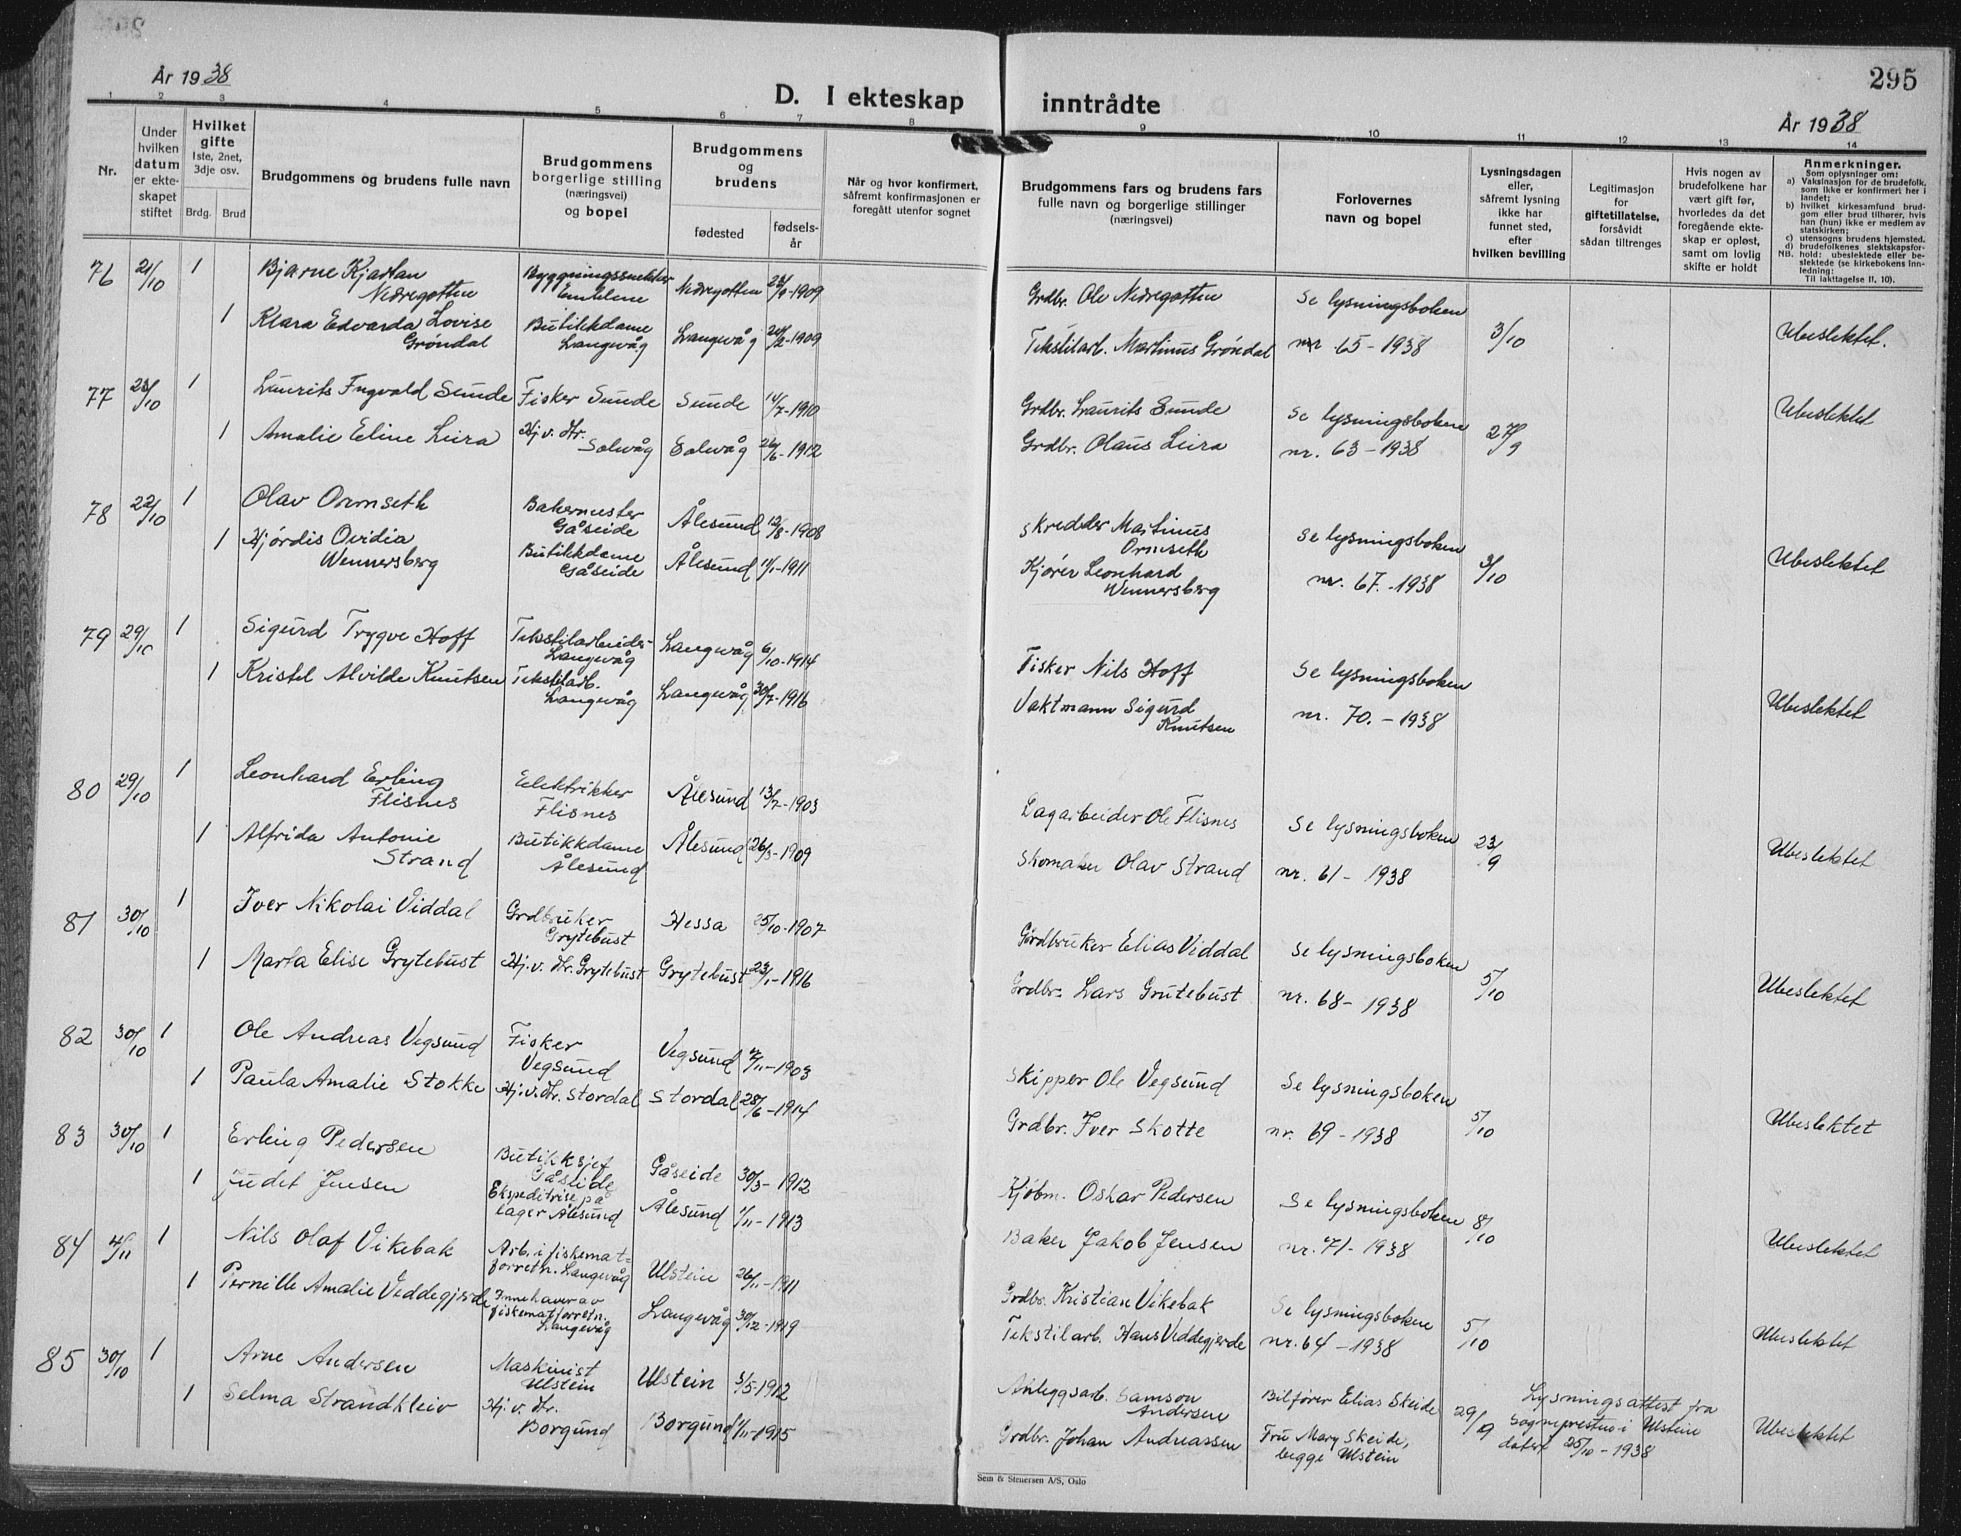 295
År 1938
D. I ekteskap inntrådte
År 1938
1 2 3 4 5 6 7 8 9 10 11 12 13 14
Nr.
Under hvilken datum er ekte- skapet stiftet
Hvilket gifte
1ste, 2net, 3dje osv.
Brdg. Brud
Brudgommens og brudens fulle navn
Brudgommens borgerlige stilling (næringsvei) og bopel
Brudgommens og brudens
fødested
fødsels- år
Når og hvor konfirmert, såfremt konfirmasjonen er foregått utenfor sognet
Brudgommens fars og brudens fars fulle navn og borgerlige stillinger (næringsvei)
Forlovernes navn og bopel
Lysningsdagen eller, såfremt lysning ikke har funnet sted, efter hvilken bevilling
Legitimasjon for giftetillatelse, forsåvidt sådan tiltrenges
Hvis nogen av brudefolkene har vært gift før, hvorledes da det foregående ekte- skap er opløst, samt om lovlig skifte er holdt
Anmerkninger.
Som oplysninger om:
a) Vaksinasjon for de brudefolk, som ikke er konfirmert her i landet;
b) hvilket kirkesamfund brud- gom eller brud tilhører, hvis han (hun) ikke er medlem av statskirken;
c) utensogns brudens hjemsted.
d) brudefolkenes slektskapsfor-
NB. hold: ubeslektede eller be- slektede (se kirkebokens inn- ledning:
Til iakttagelse II, 10).
76 21/10 1 Bjarne Kjartan Nedregotten Byggningssnekker Emblene Nedregotten 22/9-1909 Grdbr. Ole Nedregotten Se lysningsboken
1 Klara Edvarda Lovise Grøndal Butikkdame Langevåg Langevåg 20/2-1909 Tekstilarb. Martinus Grøndal nr 65-1938 3/10 Ubeslektet.
77 23/10 1 Laurits Ingvald Sunde Fisker Sunde Sunde 14/7-1910 Grdbr. Laurits Sunde Se lysningsboken Ubeslektet
1 Amalie Eline Leira Hj. v. Hr. Solevåg Solevåg 26/6-1912 Grdbr. Olaus Leira nr. 63-1938 27/9
78 22/10 1 Olav Ormseth Bakermester Gåseide Ålesund 12/8-1908 Skredder Martinus Ormseth Se lysningsboken
1 Hjördis Ovidia Wennersberg Butikkdame Gåseide Ålesund 11/1-1911 Kjører Leonhard Wennersberg nr. 67.-1938 3/10 Ubeslektet
79 29/10 1 Sigurd Trygve Hoff Tekstilarbeider Langevåg Langevåg 6/10-1914 Fisker Nils Hoff Se lysningsboken
1 Kristel Alvilde Knutsen Tekstilarb. Langevåg Langevåg 30/7-1916 Vaktmann Sigurd Knutsen nr. 70.-1938 Ubeslektet
80 29/10 1 Leonhard Erling Flisnes Elektrikker Flisnes Ålesund 13/7-1903 Lagarbeider Ole Flisnes Se lysningsboken
1 Alfrida Antonie Strand Butikkdame Ålesund Ålesund 26/3-1909 Skomaker Olav Strand nr. 61-1938 23/9 Ubeslektet
81 30/10 1 Iver Nikolai Viddal Grdbruker Grytebust Hessa 25/10-1907 Gårdbruker Elias Viddal Se lysningsboken
1 Marta Elise Grytebust Hj. v. Hr. Grytebust Grytebust 23/1-1916 Grdbr. Lars Grutebust nr. 68-1938 5/10 Ubeslektet
82 30/10 1 Ole Andreas Vegsund Fisker Vegsund Vegsund 2/11-1903 Skipper Ole Vegsund Se lysningsboken
1 Paula Amalie Stokke Hj. v. Hr. Stordal Stordal 28/6-1914 Grdbr. Iver Skotte nr. 69-1938 5/10 Ubeslektet
83 30/10 1 Erling Pedersen Butikksjef Gåseide Gåseide 30/3-1912 Kjøbm. Oskar Pedersen Se lysningsboken
1 Judet Jensen Ekspeditrise på lager Ålesund Ålesund 1/11-1913 Baker Jakob Jensen nr. 71-1938 8/10 Ubeslektet
84 4/11 1 Nils Olaf Vikebak Arb. i fiskemat- forretn. Langevåg Ulstein 26/11-1911 Grdbr. Kristian Vikebak Se lysningsboken
1 Pernille Amalie Veddegjerde Innehaver av fiskematforretn. Langevåg Langevåg 30/12-1919 Tekstilarb. Hans Veddegjerde nr. 64-1938 5/10 Ubeslektet
85 30/10 1 Arne Andersen Maskinist Ulstein Ulstein 3/5-1912 Anleggsarb. Samson Andersen Bilfører Elias Skeide Lysningsattest fra
1 Selma Strandkleiv Hj. v. Hr. Borgund Borgund 1/11-1915 Grdbr. Johan Andreassen Fru Mary Skeide, begge Ulstein 29/9 Sogneprestens i Ulstein datert 25/10-1938 Ubeslektet
Sem & Stenersen A/S, Oslo